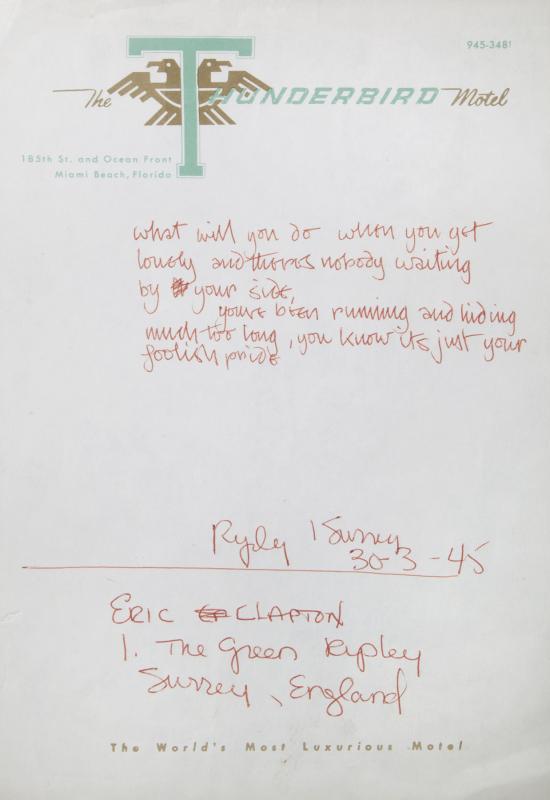 945-3481
The THUNDERBIRD Motel
185th St. and Ocean Front
Miami Beach, Florida
what will you do when you get
lonely and theres nobody waiting
by your side,
youre been running and hiding
much too long, you know its just your
foolish pride
Surrey
30-3-45
ERIC CLAPTON
1. The Green Ripley
Surrey, England
The World's Most Luxurious Motel